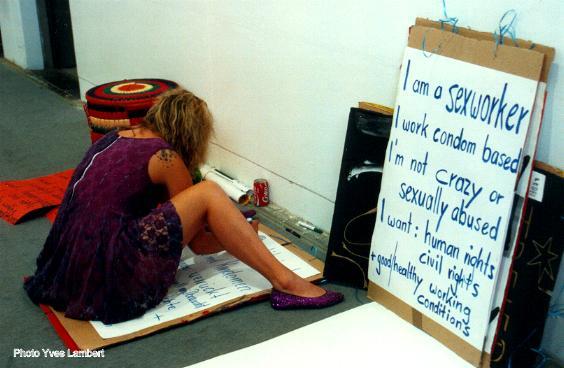 I am a sexworker
I work condom based
I'm not crazy or
sexually abused
I want: human rights
civil rights
+ good/healthy working
conditions
Photo Yves Lambert